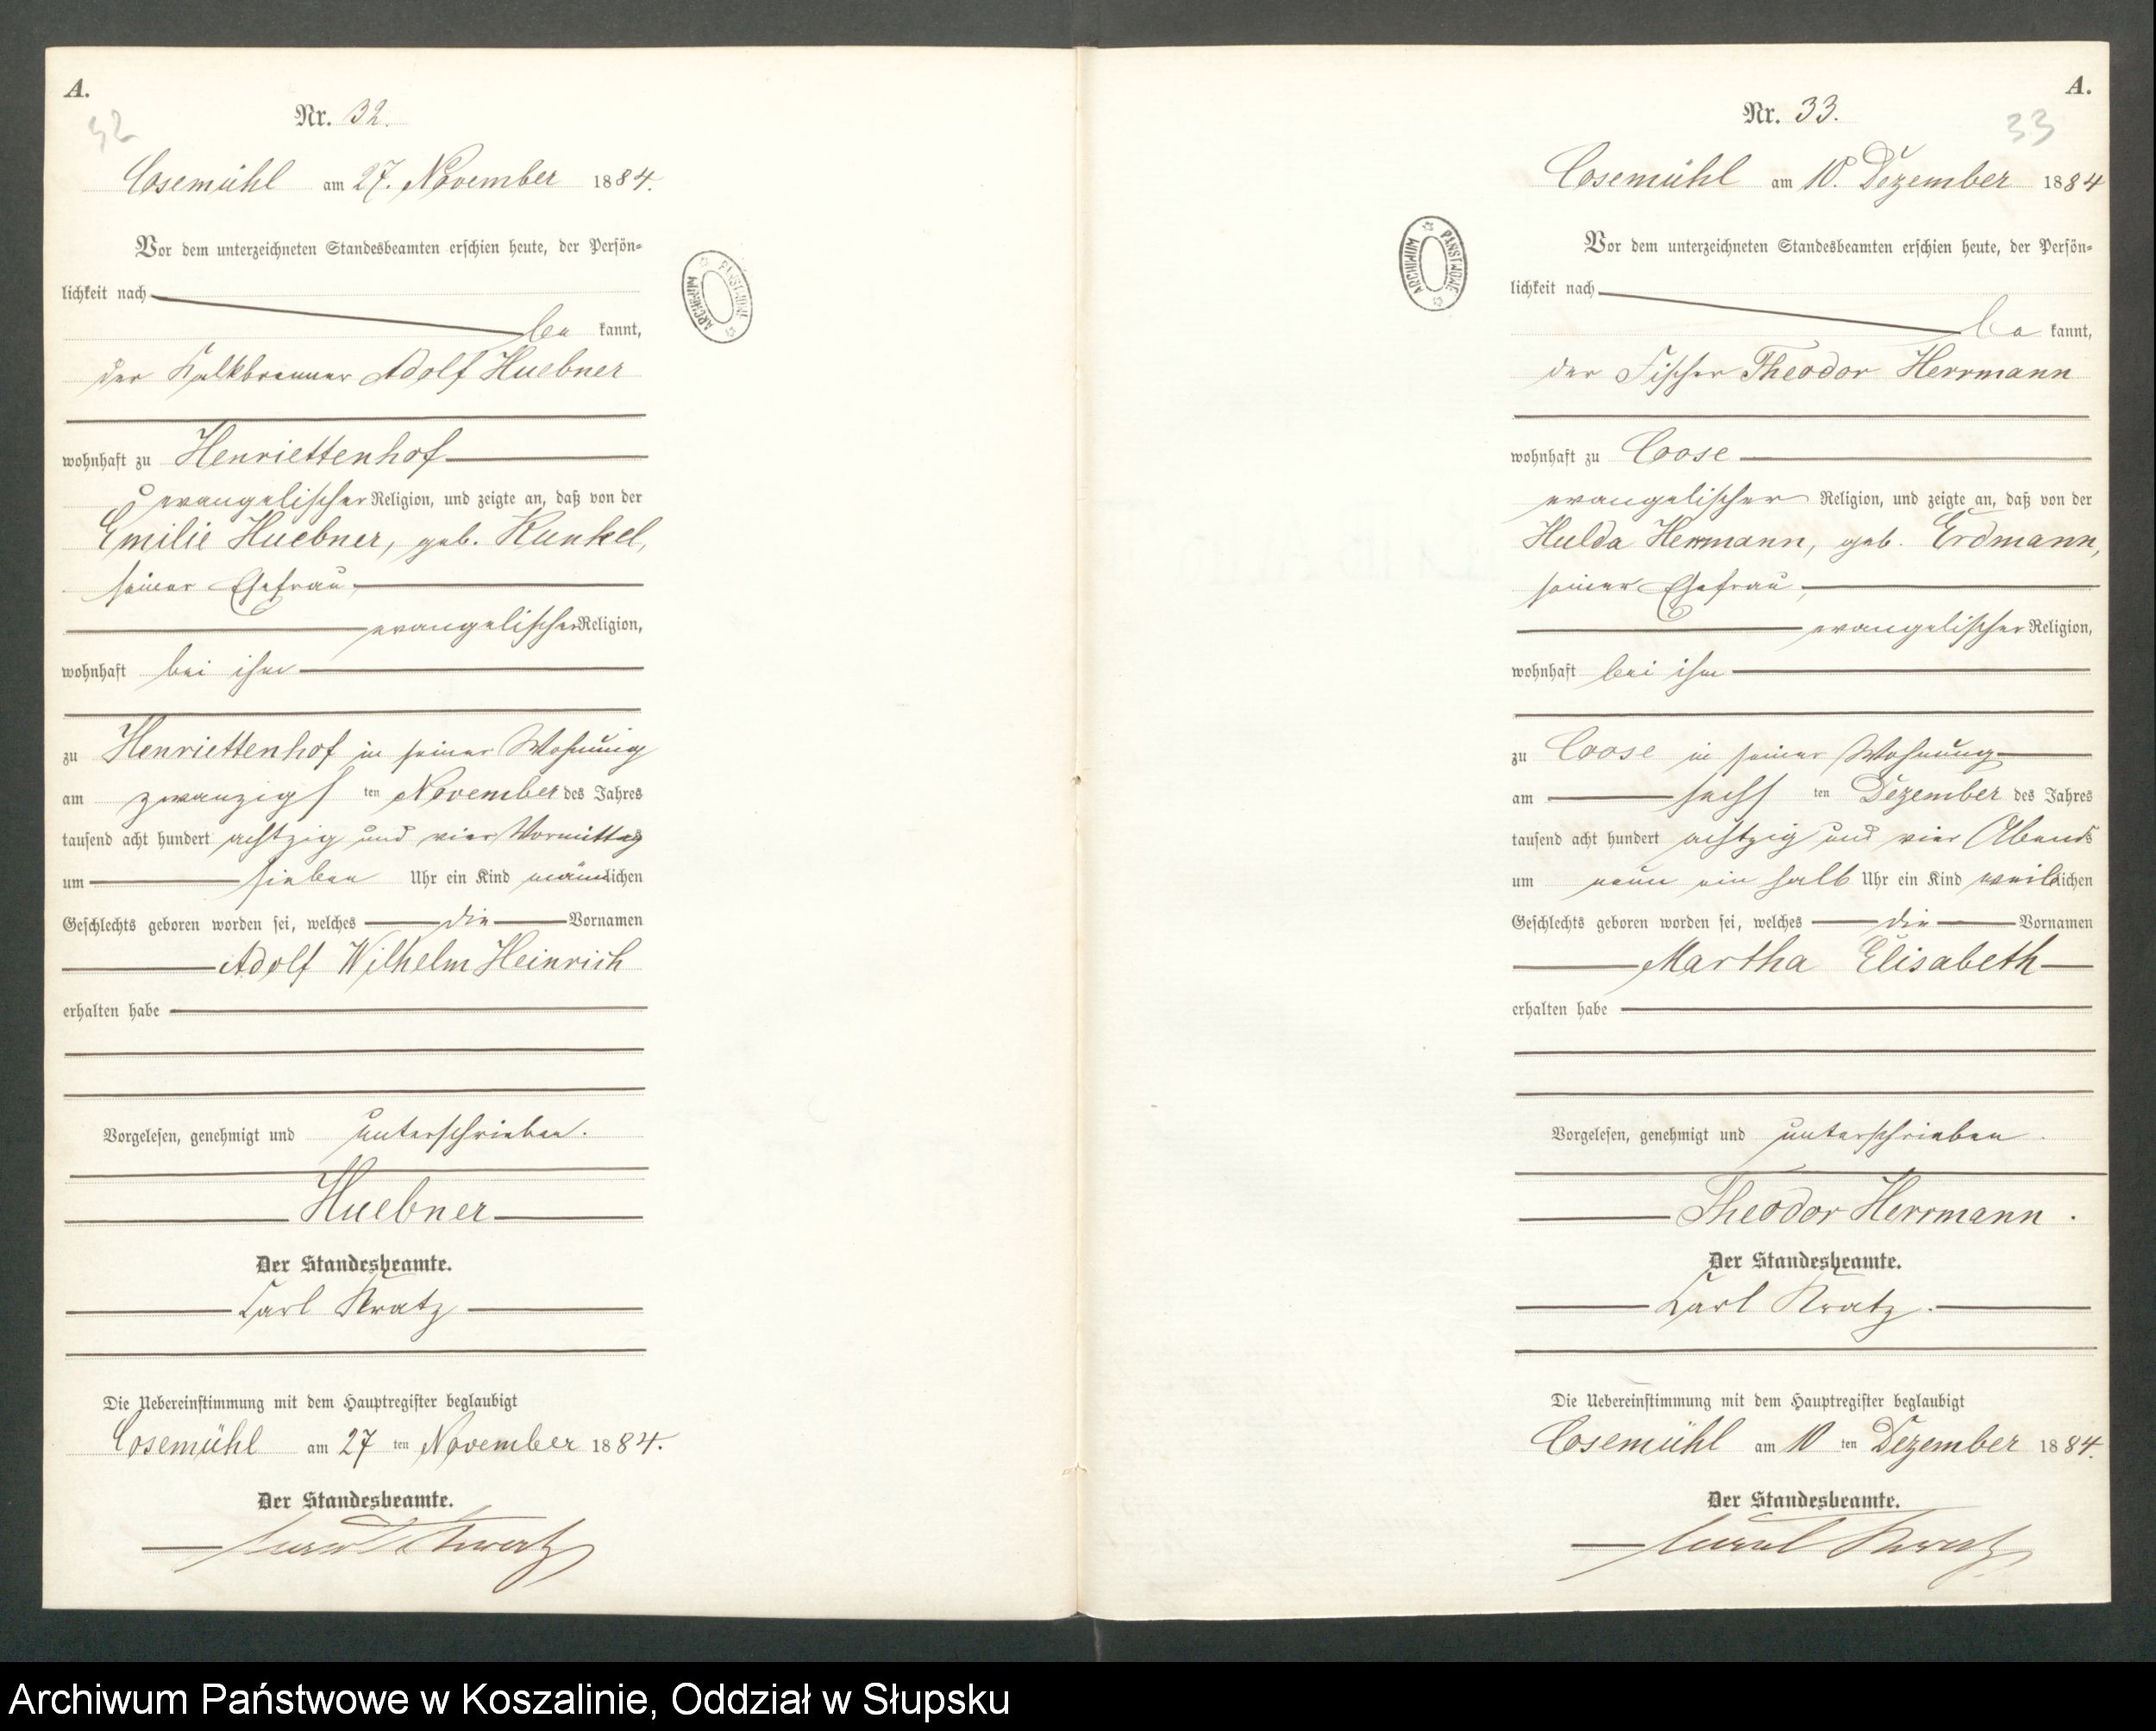 A.
32
Nr. 32.
Cosemühl am 27. November 1884.
Vor dem unterzeichneten Standesbeamten erschien heute, der Persön-
lichkeit nach
be kannt,
der Kalkbrenner Adolf Huebner
wohnhaft zu Henriettenhof
evangelischer Religion, und zeigte an, daß von der
Emilie Huebner, geb. Kunkel,
seiner Ehefrau,
evangelischer Religion,
wohnhaft bei ihm
zu Henriettenhof in seiner Wohnung
am zwanzigs ten November des Jahres
tausend acht hundert achtzig und vier Vormittag
um sieben Uhr ein Kind männlichen
Geschlechts geboren worden sei, welches die Vornamen
Adolf Wilhelm Heinrich
erhalten habe
Vorgelesen, genehmigt und unterschrieben.
Huebner
Der Standesbeamte.
Carl Kratz
Die Uebereinstimmung mit dem Hauptregister beglaubigt
Cosemühl am 27 ten November 1884.
Der Standesbeamte.
Carl Kratz
ARCHIWUM PAŃSTWOWE
A.
33
Nr. 33.
Cosemühl am 10. Dezember 1884
Vor dem unterzeichneten Standesbeamten erschien heute, der Persön-
lichkeit nach
be kannt,
der Fischer Theodor Herrmann
wohnhaft zu Coose
evangelischer Religion, und zeigte an, daß von der
Hulda Herrmann, geb. Erdmann,
seiner Ehefrau,
evangelischer Religion,
wohnhaft bei ihm
zu Coose in seiner Wohnung
am sechs ten Dezember des Jahres
tausend acht hundert achtzig und vier Abends
um neun ein halb Uhr ein Kind weiblichen
Geschlechts geboren worden sei, welches die Vornamen
Martha Elisabeth
erhalten habe
Vorgelesen, genehmigt und unterschrieben.
Theodor Herrmann.
Der Standesbeamte.
Carl Kratz.
Die Uebereinstimmung mit dem Hauptregister beglaubigt
Cosemühl am 10 ten Dezember 1884.
Der Standesbeamte.
Carl Kratz
ARCHIWUM PAŃSTWOWE
Archiwum Państwowe w Koszalinie, Oddział w Słupsku